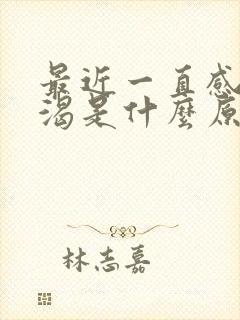 最近一直感
渴是什麼原
林志嘉